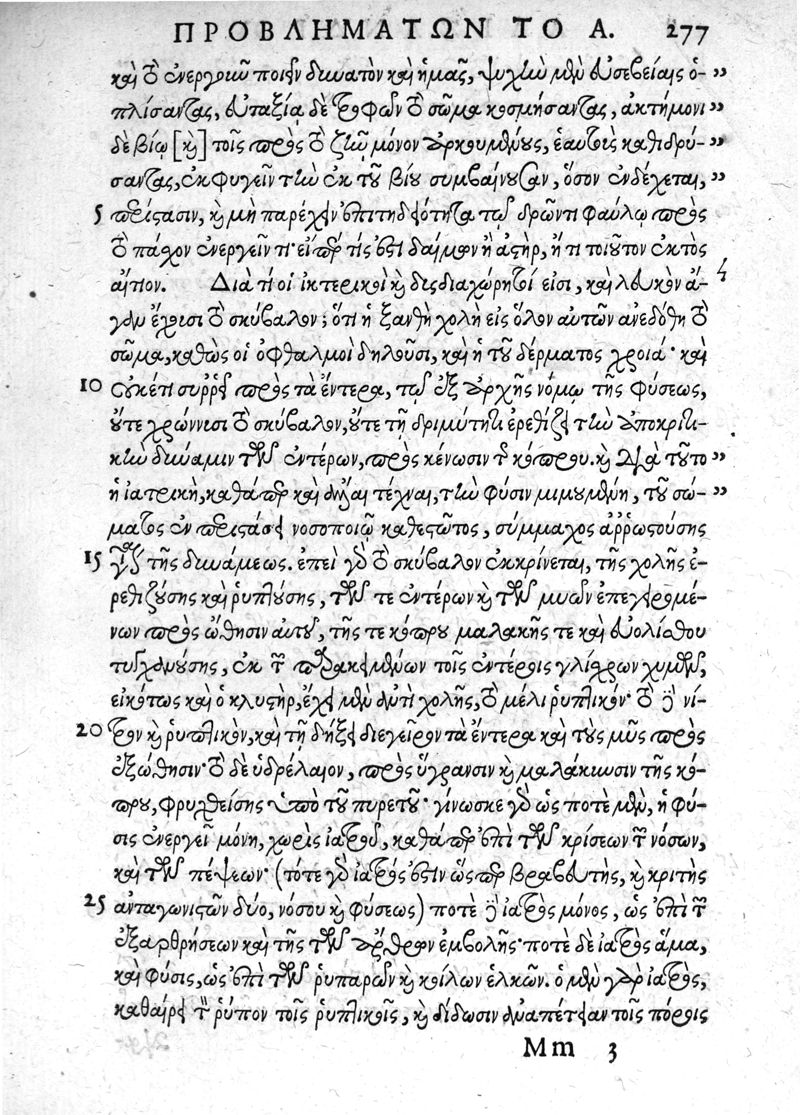 ΠΡΟΒΛΗΜΑΤΩΝ ΤΟ Α. 277
καὶ τὸ ἐνεργοῦν ποιεῖν δυνατὸν καὶ ἡμᾶς, ψυχὴν μὲν εὐσεβείαις ὁ- ”
πλίσαντας, εὐταξίᾳ δὲ τροφῶν τὸ σῶμα κοσμήσαντας, ἀκτήμονι ”
δὲ βίῳ [καὶ] τοῖς πρὸς τὸ ζῆν μόνον ἀρκουμένους, ἑαυτοὺς καθιδρύ- ”
σαντας, ἐκφυγεῖν τὴν ἐκ τοῦ βίου συμβαίνουσαν, ὅσον ἐνδέχεται, ”
5 περίστασιν, καὶ μὴ παρέχειν ἐπιτηδειότητα τῷ δρῶντι φαύλῳ πρὸς
τὸ πάσχον ἐνεργεῖν τι· εἴπερ τίς ἐστι δαίμων ἢ ἀστὴρ, ἤ τι τοιοῦτον ἐκτὸς
αἴτιον. Διὰ τί οἱ ἰκτερικοὶ καὶ δυσδιαχώρητοί εἰσι, καὶ λευκὸν ἄ-
γαν ἔχουσι τὸ σκύβαλον; ὅτι ἡ ξανθὴ χολὴ εἰς ὅλον αὐτῶν ἀνεδόθη τὸ
σῶμα, καθὼς οἱ ὀφθαλμοὶ δηλοῦσι, καὶ ἡ τοῦ δέρματος χροιά· καὶ
10 οὐκέτι συρρεῖ πρὸς τὰ ἔντερα, τῷ ἐξ ἀρχῆς νόμῳ τῆς φύσεως,
οὔτε χρώννυσι τὸ σκύβαλον, οὔτε τῇ δριμύτητι ἐρεθίζει τὴν ἀποκριτι-
κὴν δύναμιν τῶν ἐντέρων, πρὸς κένωσιν τοῦ κόπρου. καὶ διὰ τοῦτο ”
ἡ ἰατρικὴ, καθάπερ καὶ ἄλλαι τέχναι, τὴν φύσιν μιμουμένη, τοῦ σώ- ”
ματος ἐν περιστάσει νοσοποιῷ καθεστῶτος, σύμμαχος ἀῤῥωστούσης
15 τῆς δυνάμεως. ἐπεὶ γὰρ τὸ σκύβαλον ἐκκρίνεται, τῆς χολῆς ἐ-
ρεθιζούσης καὶ ῥυπτούσης, τῶν τε ἐντέρων καὶ τῶν μυῶν ἐπεγειρομέ-
νων πρὸς ὤθησιν αὐτοῦ, τῆς τε κόπρου μαλακῆς τε καὶ εὐολίσθου
τυγχανούσης, ἐκ τῶν παρακειμένων τοῖς ἐντέροις γλίσχρων χυμῶν,
εἰκότως καὶ ὁ κλυστὴρ, ἔχει μὲν ἀντὶ χολῆς, τὸ μέλι ῥυπτικόν· τὸ δὲ νί-
20 τρον καὶ ῥυπτικὸν, καὶ τῇ δήξει διεγεῖρον τὰ ἔντερα καὶ τοὺς μῦς πρὸς
ἐξώθησιν· τὸ δὲ ὑδρέλαιον, πρὸς ὕγρανσιν καὶ μαλάκυνσιν τῆς κό-
πρου, φρυχθείσης ὑπὸ τοῦ πυρετοῦ· γίνωσκε γὰρ ὡς ποτὲ μὲν, ἡ φύ-
σις ἐνεργεῖ μόνη, χωρὶς ἰατροῦ, καθάπερ ἐπὶ τῶν κρίσεων τῶν νόσων,
καὶ τῶν πέψεων· (τότε γὰρ ἰατρός ἐστιν ὥσπερ βραβευτὴς, καὶ κριτὴς
25 ἀνταγωνιστῶν δύο, νόσου καὶ φύσεως) ποτὲ δὲ ἰατρὸς μόνος, ὡς ἐπὶ τῶν
ἐξαρθρήσεων καὶ τῆς τῶν ἄρθρων ἐμβολῆς· ποτὲ δὲ ἰατρὸς ἅμα,
καὶ φύσις, ὡς ἐπὶ τῶν ῥυπαρῶν καὶ κοίλων ἑλκῶν. ὁ μὲν γὰρ ἰατρὸς,
καθαίρει τὸν ῥύπον τοῖς ῥυπτικοῖς, καὶ δίδωσιν ἀναπέτειαν τοῖς πόροις
Mm 3